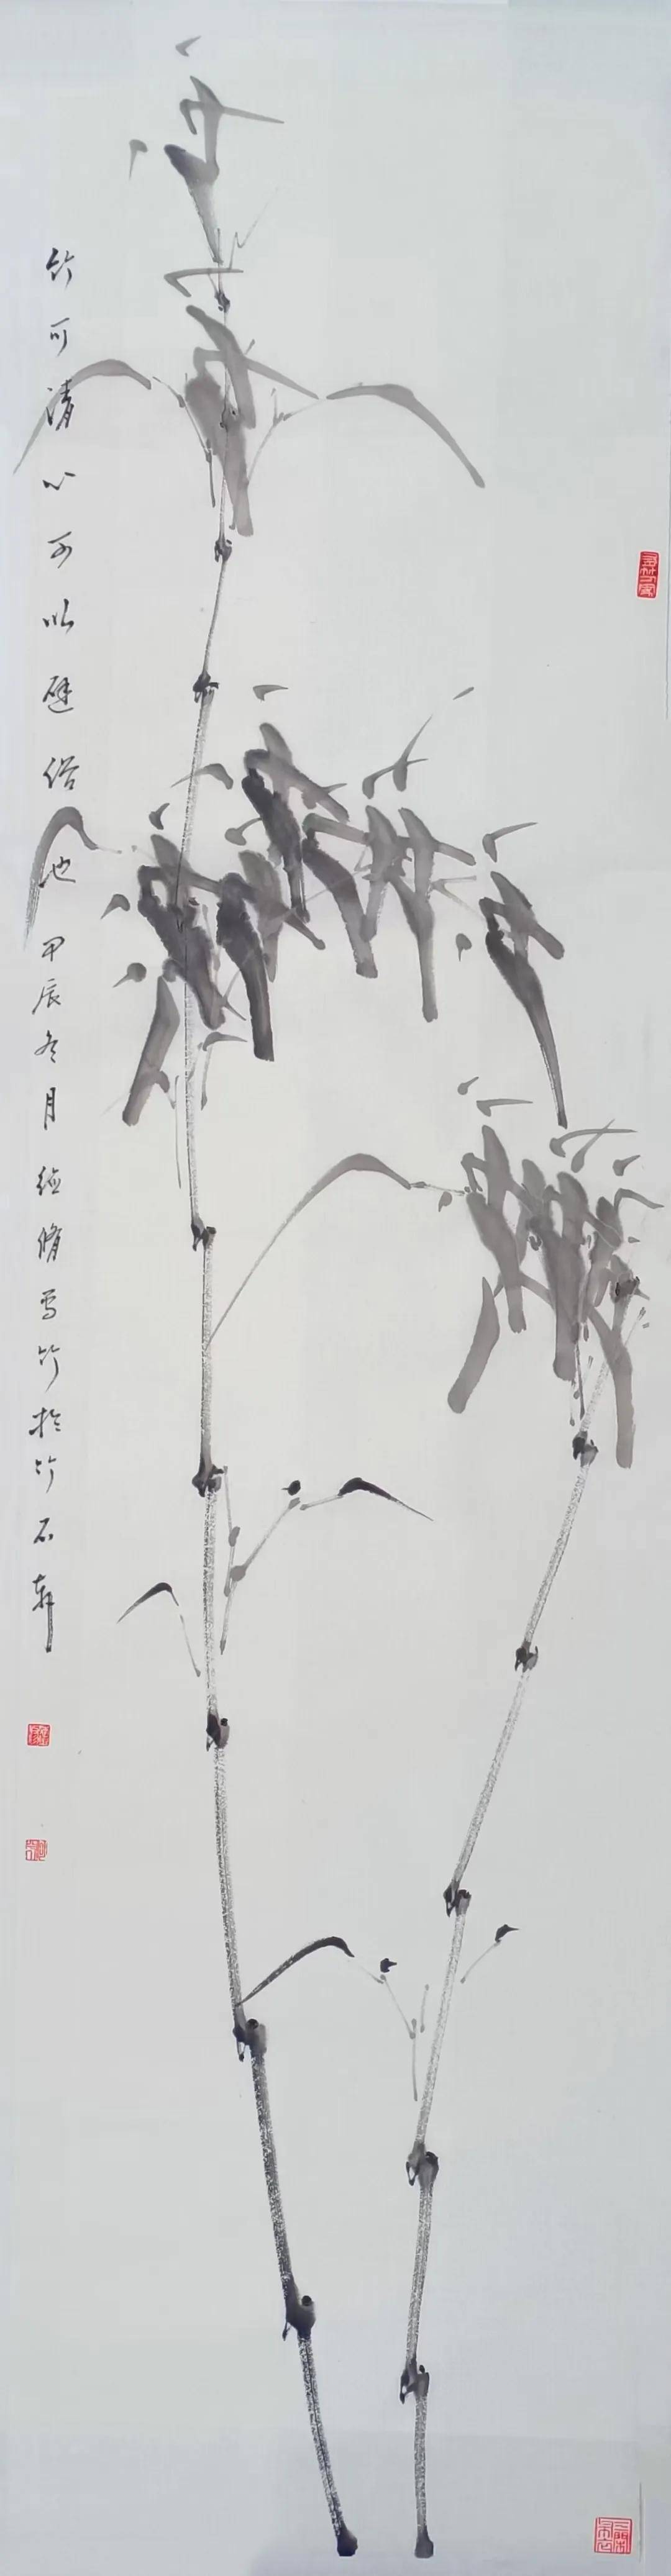 竹可清心可以避俗也甲辰冬月德脩写竹於竹石轩